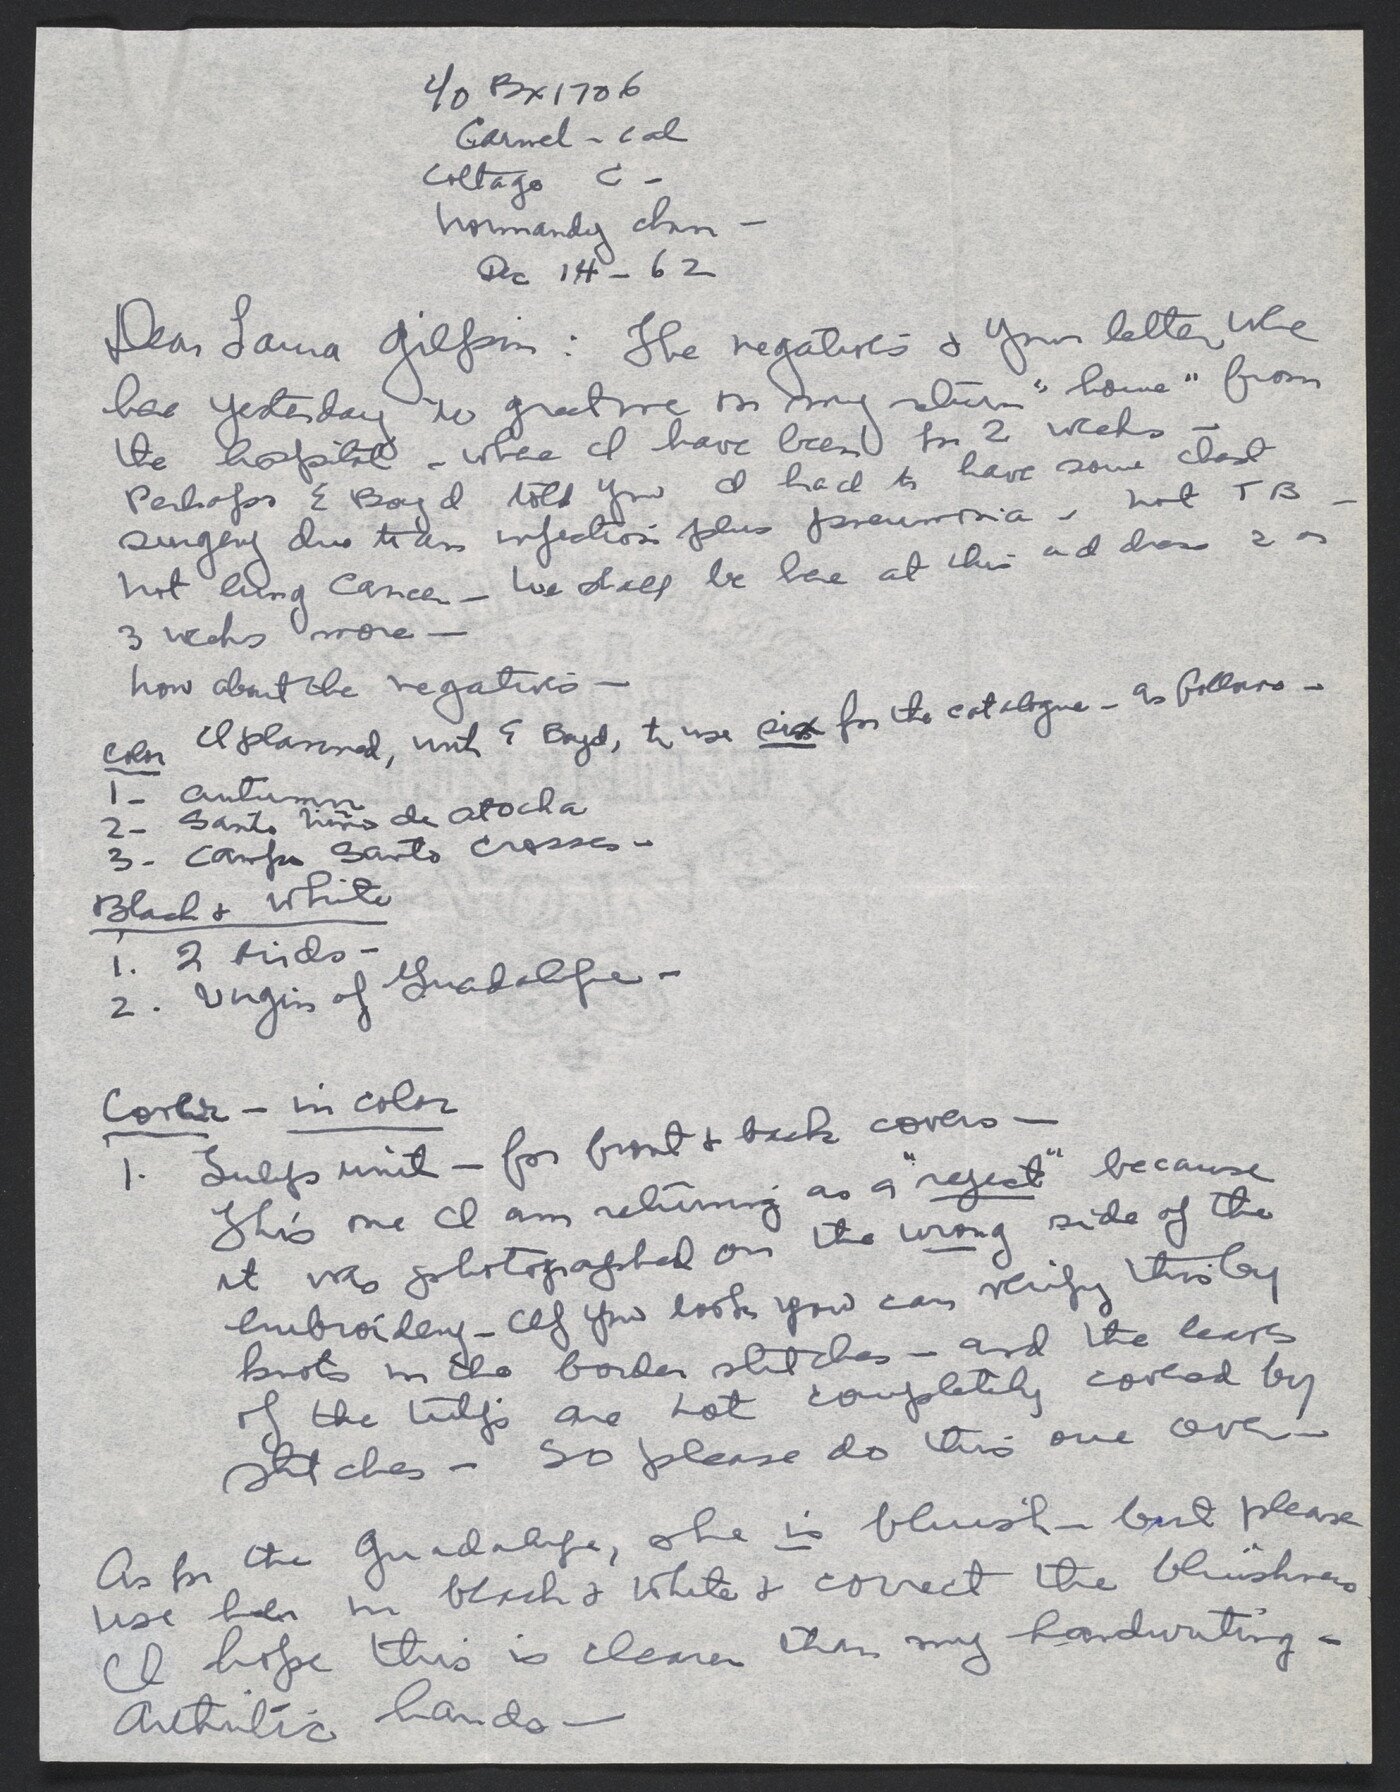 c/o Bx 1706
Carmel - Cal
Cottage C -
Normandy Inn -
Dec 14 - 62
Dear Laura Gilpin: The negatives & your letter, were
here yesterday to greet me on my return "home" from
the hospital - where I have been for 2 weeks -
Perhaps E Boyd told you I had to have some chest
surgery due to an infection plus pneumonia - not TB -
not lung cancer - We shall be here at this address 2 or
3 weeks more -
Now about the negatives -
I planned, with E Boyd, to use six for the catalogue - as follows -
Color
1- Autumn
2- Santo Niño de Atocha
3- Campo Santo Crosses -
Black & White
1. 2 birds -
2. Virgin of Guadalupe -
Cover - in color
1. Tulips unit - for front & back covers -
This one I am returning as a "reject" because
it was photographed on the wrong side of the
embroidery - If you look you can verify this by
knots in the border stitches - and the leaves
of the tulips are not completely covered by
stitches - So please do this one over -
As for the Guadalupe, she is bluish - but please
use her in black & white & correct the bluishness
I hope this is clearer than my handwriting -
Arthritic hands -